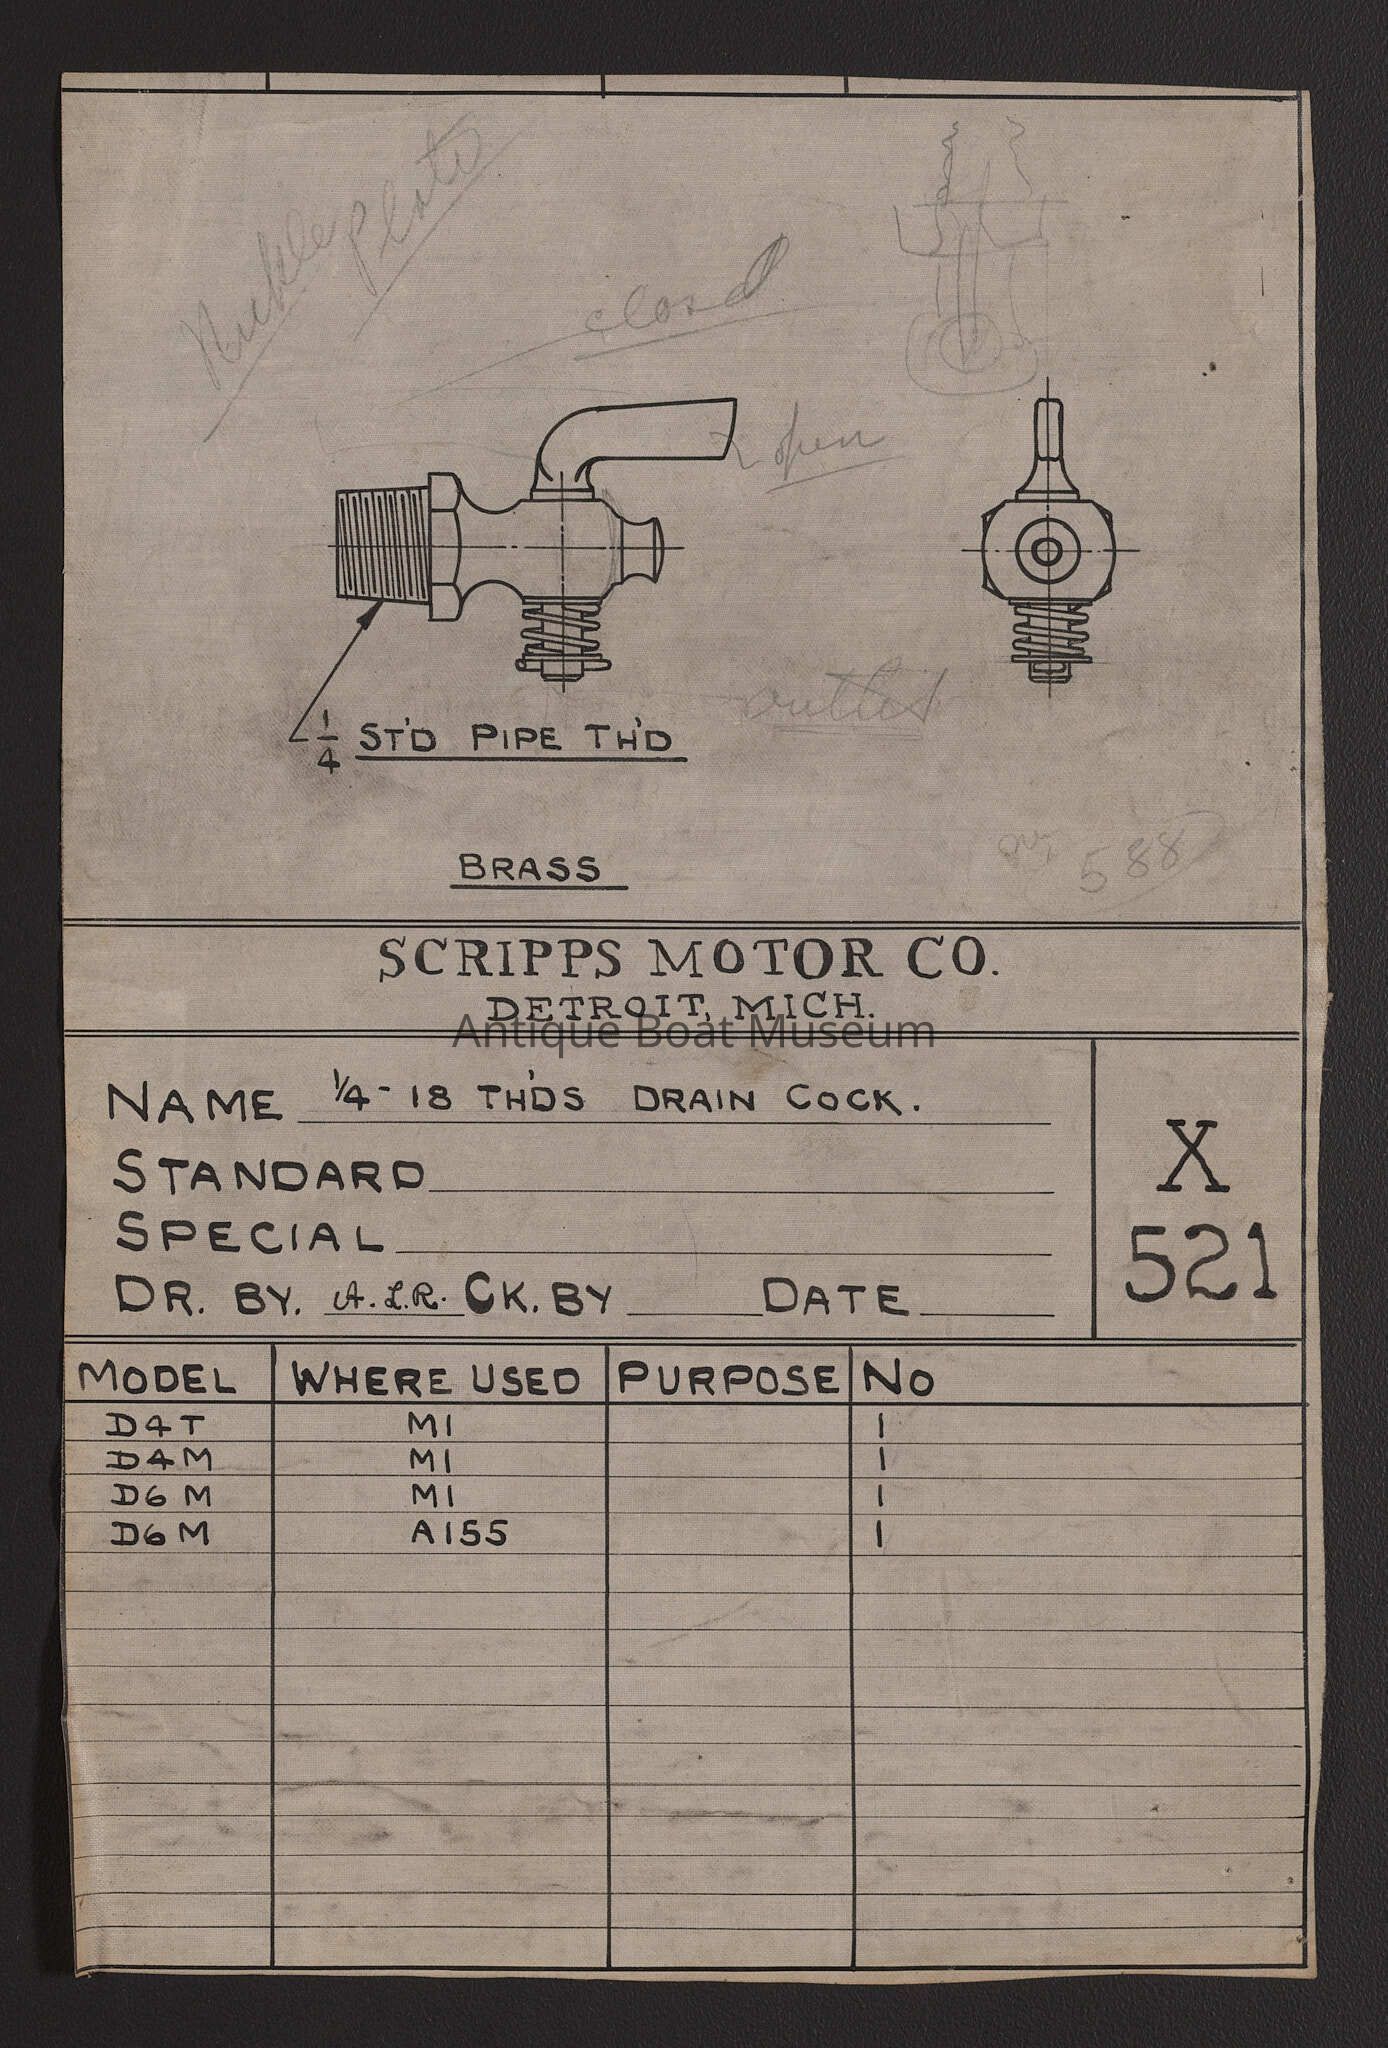 Nickle
Plate
closed
open
1/4 ST'D PIPE TH'D
outlet
588
BRASS
SCRIPPS MOTOR CO.
DETROIT, MICH.
Antique Boat Museum
NAME 1/4-18 TH'DS DRAIN COCK.
STANDARD
SPECIAL
X
521
DR. BY. A.L.R. CK. BY DATE
MODEL WHERE USED PURPOSE NO
D4T M1 1
D4M M1 1
D6M M1 1
D6M A155 1